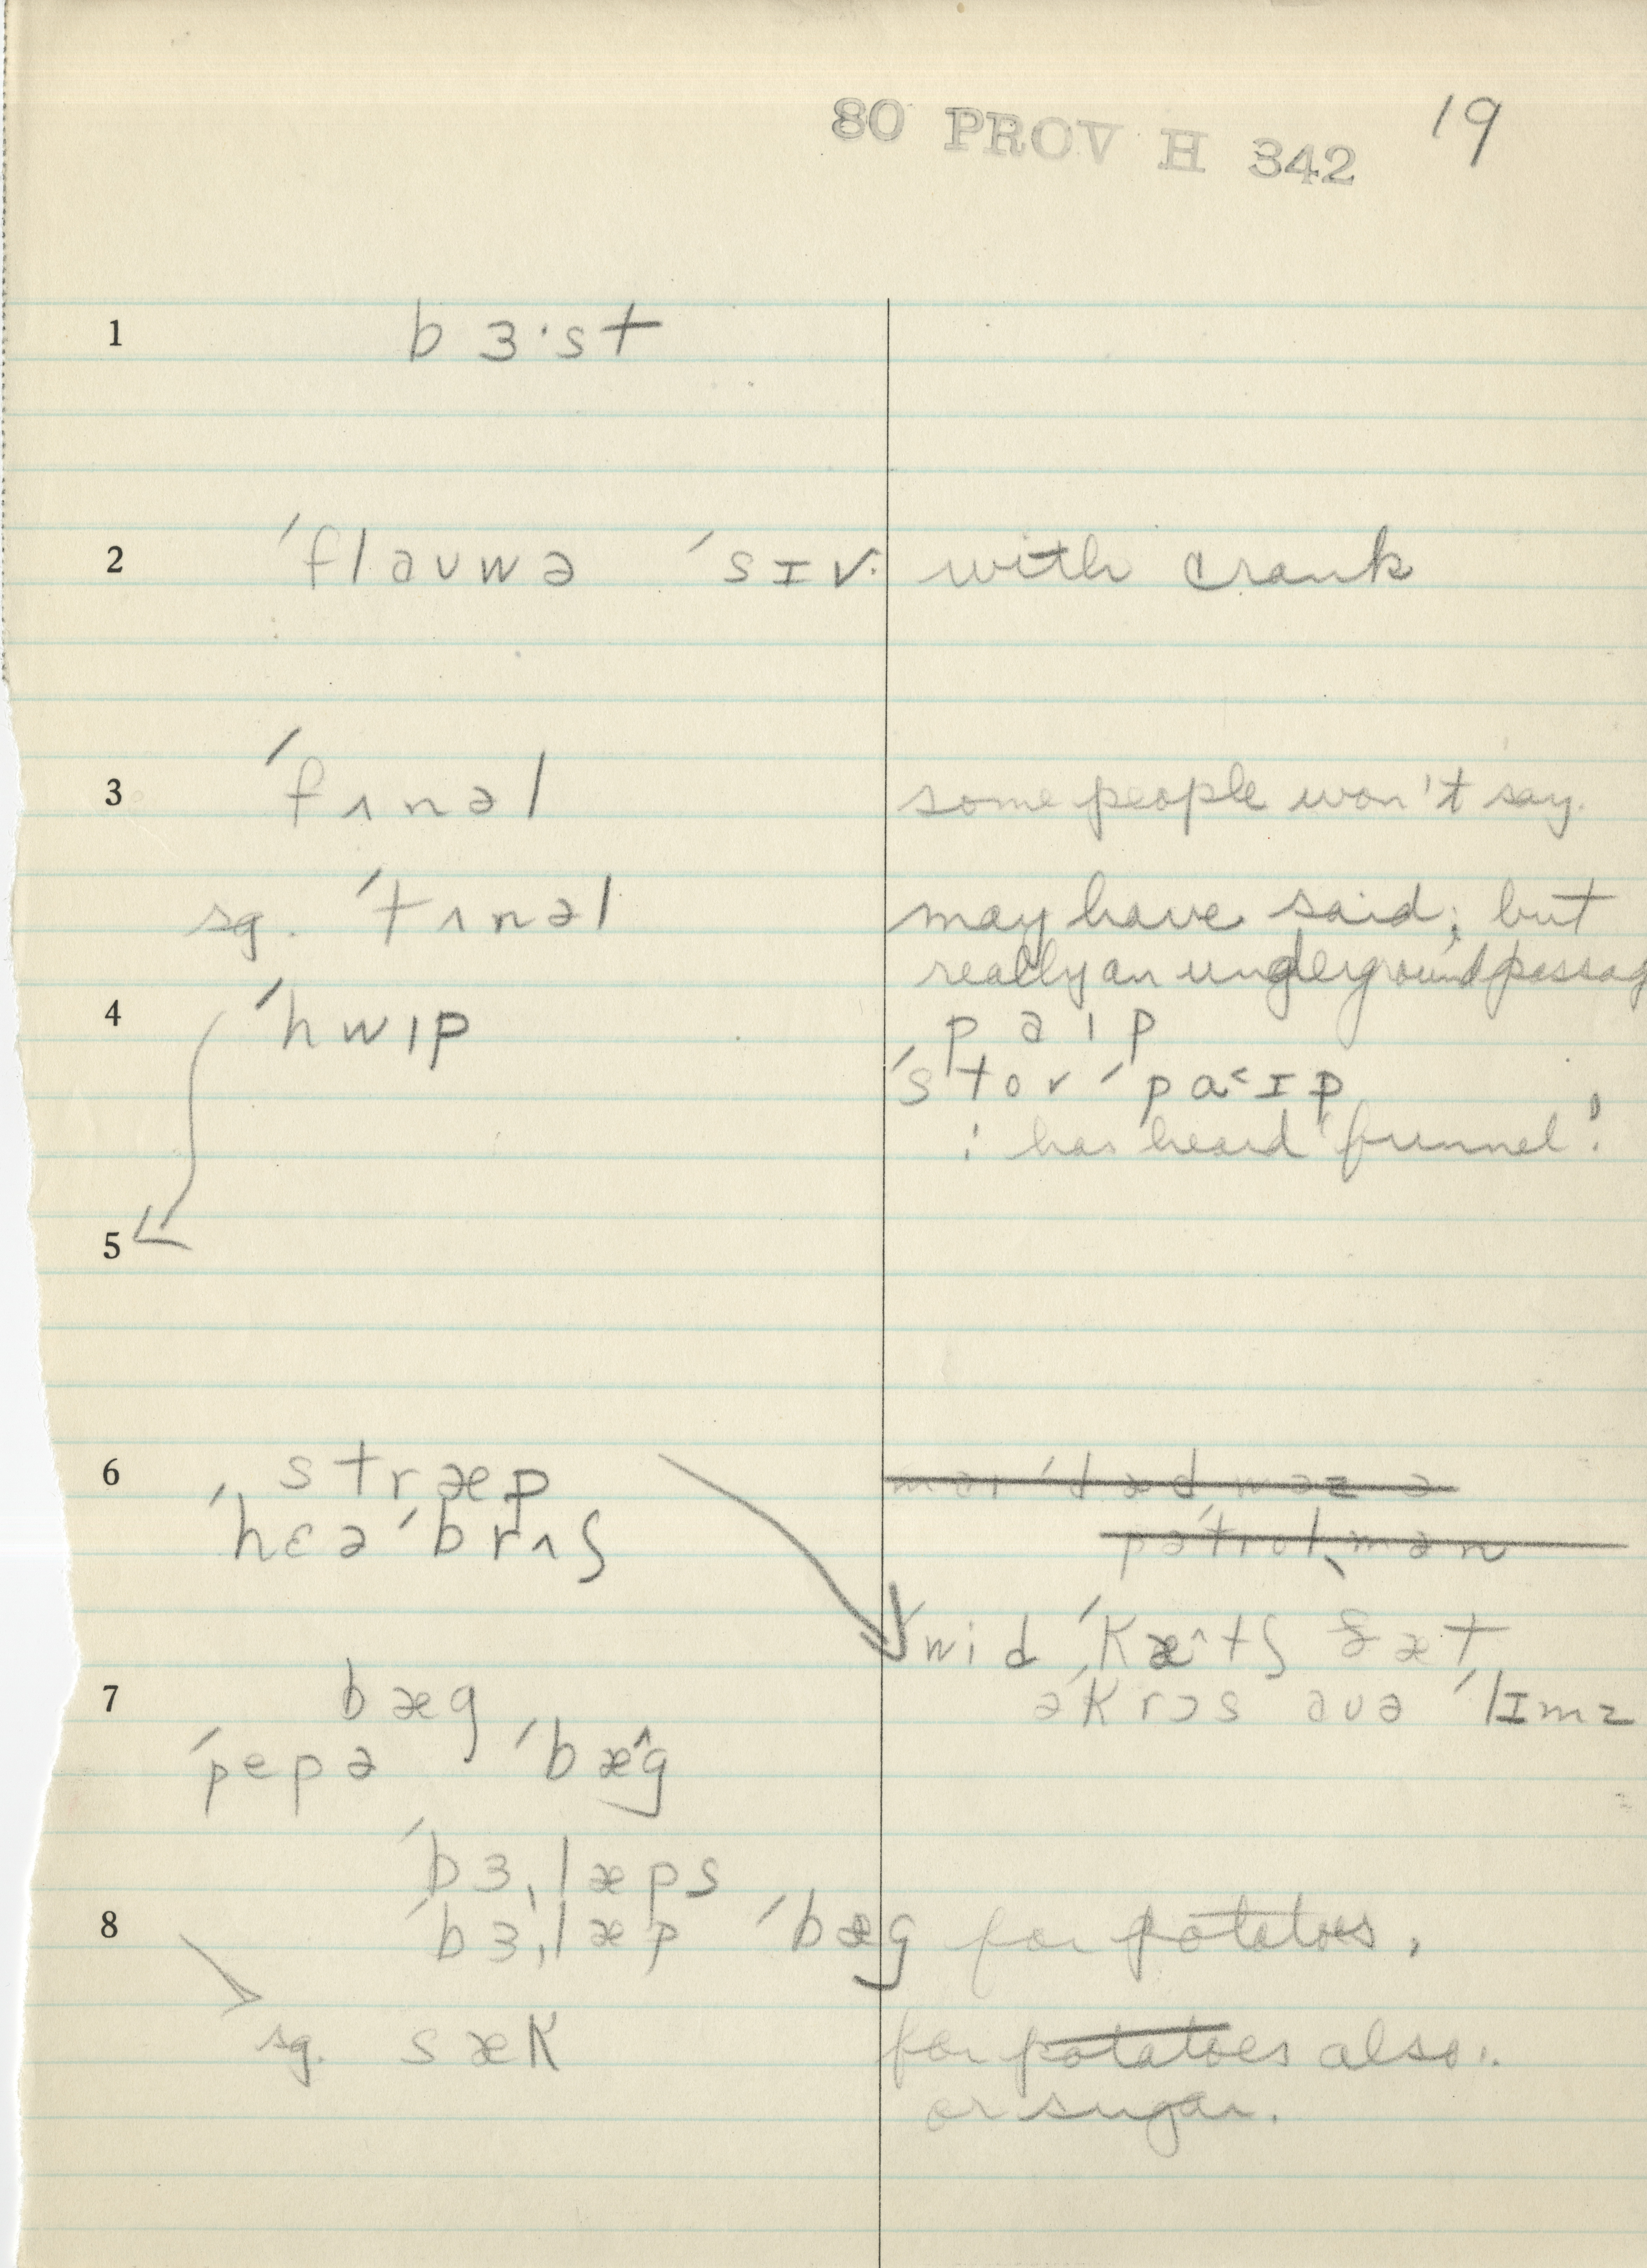 80 PROV H 342 19
1 b ɜ·st
2 ˈflauwə ˈsɪv· with crank
3 ˈfʌnəl some people won't say.
sg. ˈtʌnəl may have said; but
really an underground passag
4 ˈhwıp p a ı p
ˈstovˈpa˂ɪp
: has heard 'funnel!
5
6 stræp
ˈhɛəˈbrʌʃ
wid ˈKæ^tʃ ðæt
əˈKrɔs əvə ˈlɪmz
7 bæg
ˈpepə ˈbæ^g
ˈbɜˌlæps
8 ˈbɜˌlæp ˈbæg for potatoes,
sg. sæK for potatoes also.
or sugar.